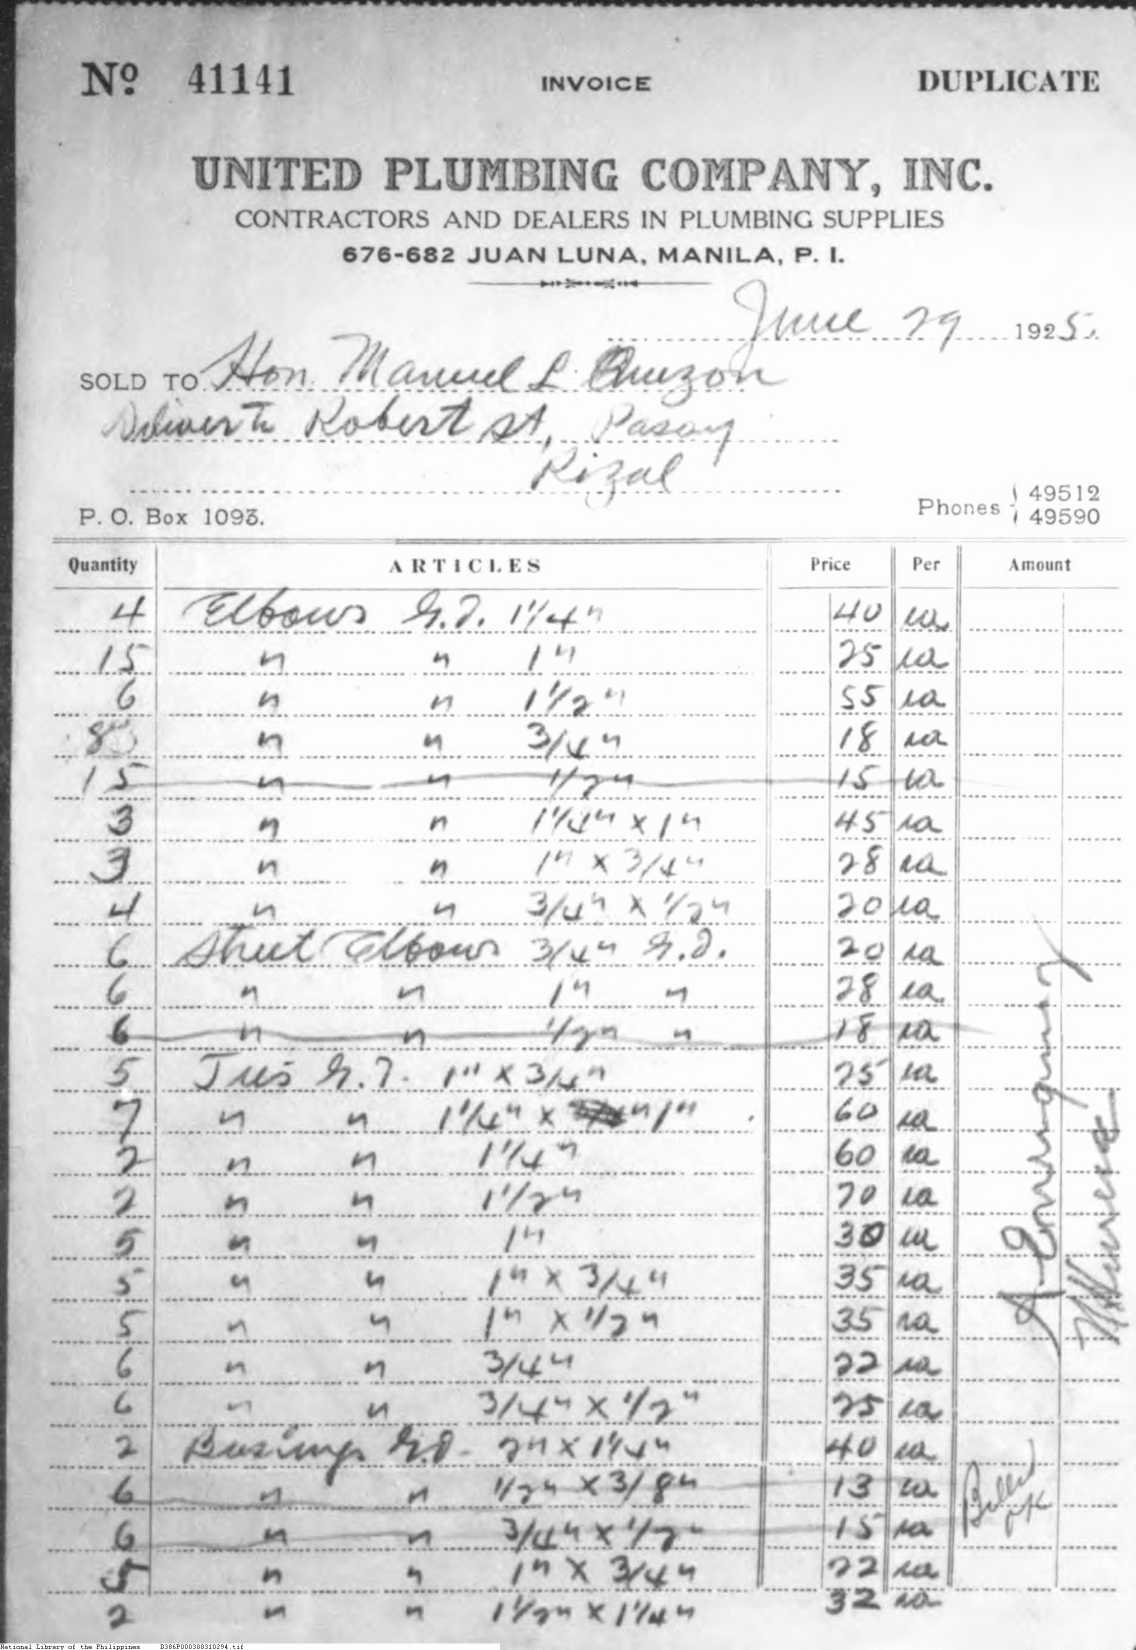 No 41141 INVOICE DUPLICATE
UNITED PLUMBING COMPANY, INC.
CONTRACTORS AND DEALERS IN PLUMBING SUPPLIES
676-682 JUAN LUNA, MANILA, P. I.
June 29 1925.
SOLD TO Hon. Manuel L. Quezon
Deliver to Robert St, Pasay
Rizal
P. O. Box 1093. Phones 49512
49590
Quantity ARTICLES Price Per Amount
4 Elbows G.I. 1 1/4" 40 ea
15 " " 1" 25 ea
6 " " 1 1/2" 55 ea
8 " " 3/4" 18 ea
15 " " 1/2" 15 ea
3 " " 1 1/4" x 1" 45 ea
3 " " 1" x 3/4" 28 ea
4 " " 3/4" x 1/2" 20 ea
6 Street Elbows 3/4" G.I. 20 ea
6 " " 1" " 28 ea
6 " " 1/2" " 18 ea
5 Tees G.I. 1" x 3/4" 25 ea
7 " " 1 1/4" x 1" 60 ea
2 " " 1 1/4" 60 ea
2 " " 1 1/2" 70 ea
5 " " 1" 30 ea
5 " " 1" x 3/4" 35 ea
5 " " 1" x 1/2" 35 ea
6 " " 3/4" 22 ea
6 " " 3/4" x 1/2" 25 ea
2 Busings G.I. 2" x 1 1/4" 40 ea
6 " " 1/2" x 3/8" 13 ea
6 " " 3/4" x 1/2" 15 ea
5 " " 1" x 3/4" 22 ea
2 " " 1 1/2" x 1 1/4" 32 ea
Billed
OK
National Library of the Philippines B386P000300310294.tif